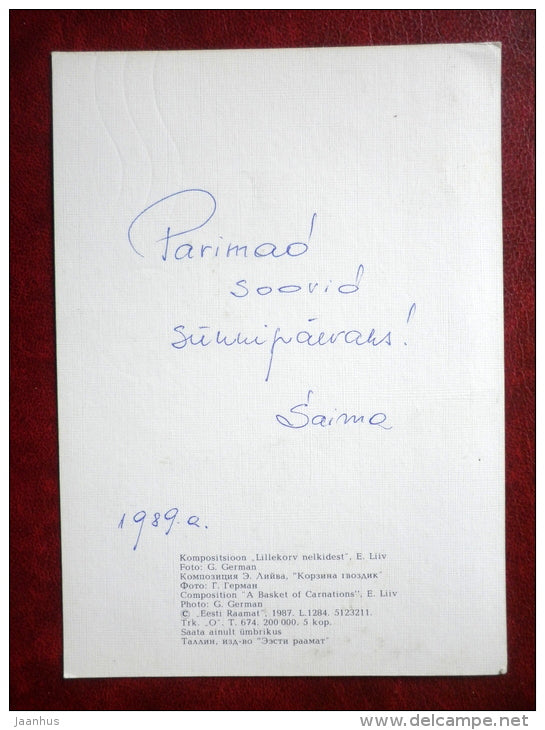 Parimad
soovid
sünnipäevaks!
Saima
1989.a.
Kompositsioon „Lillekorv nelkidest", E. Liiv
Foto: G. German
Композиция Э. Лийва, "Корзина гвоздик"
Фото: Г. Герман
Composition "A Basket of Carnations", E. Liiv
Photo: G. German
© „Eesti Raamat", 1987. L.1284. 5123211.
Trk. „O". T. 674. 200 000. 5 kop.
Saata ainult ümbrikus
Таллин, изд-во "Ээсти раамат"
jaanhus
www.delcampe.net